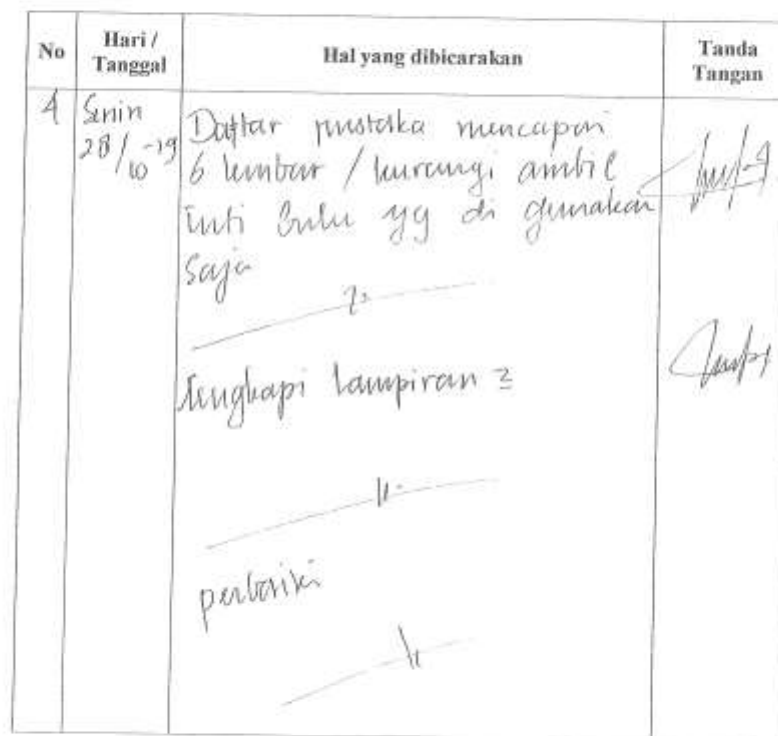 No Hari / Tanggal Hal yang dibicarakan Tanda Tangan
4 Senin 28/10-19 Daftar pustaka mencapai
6 lembar / kurangi ambil
inti buku yg di gunakan
Saja
lengkapi lampiran 2
perbaiki